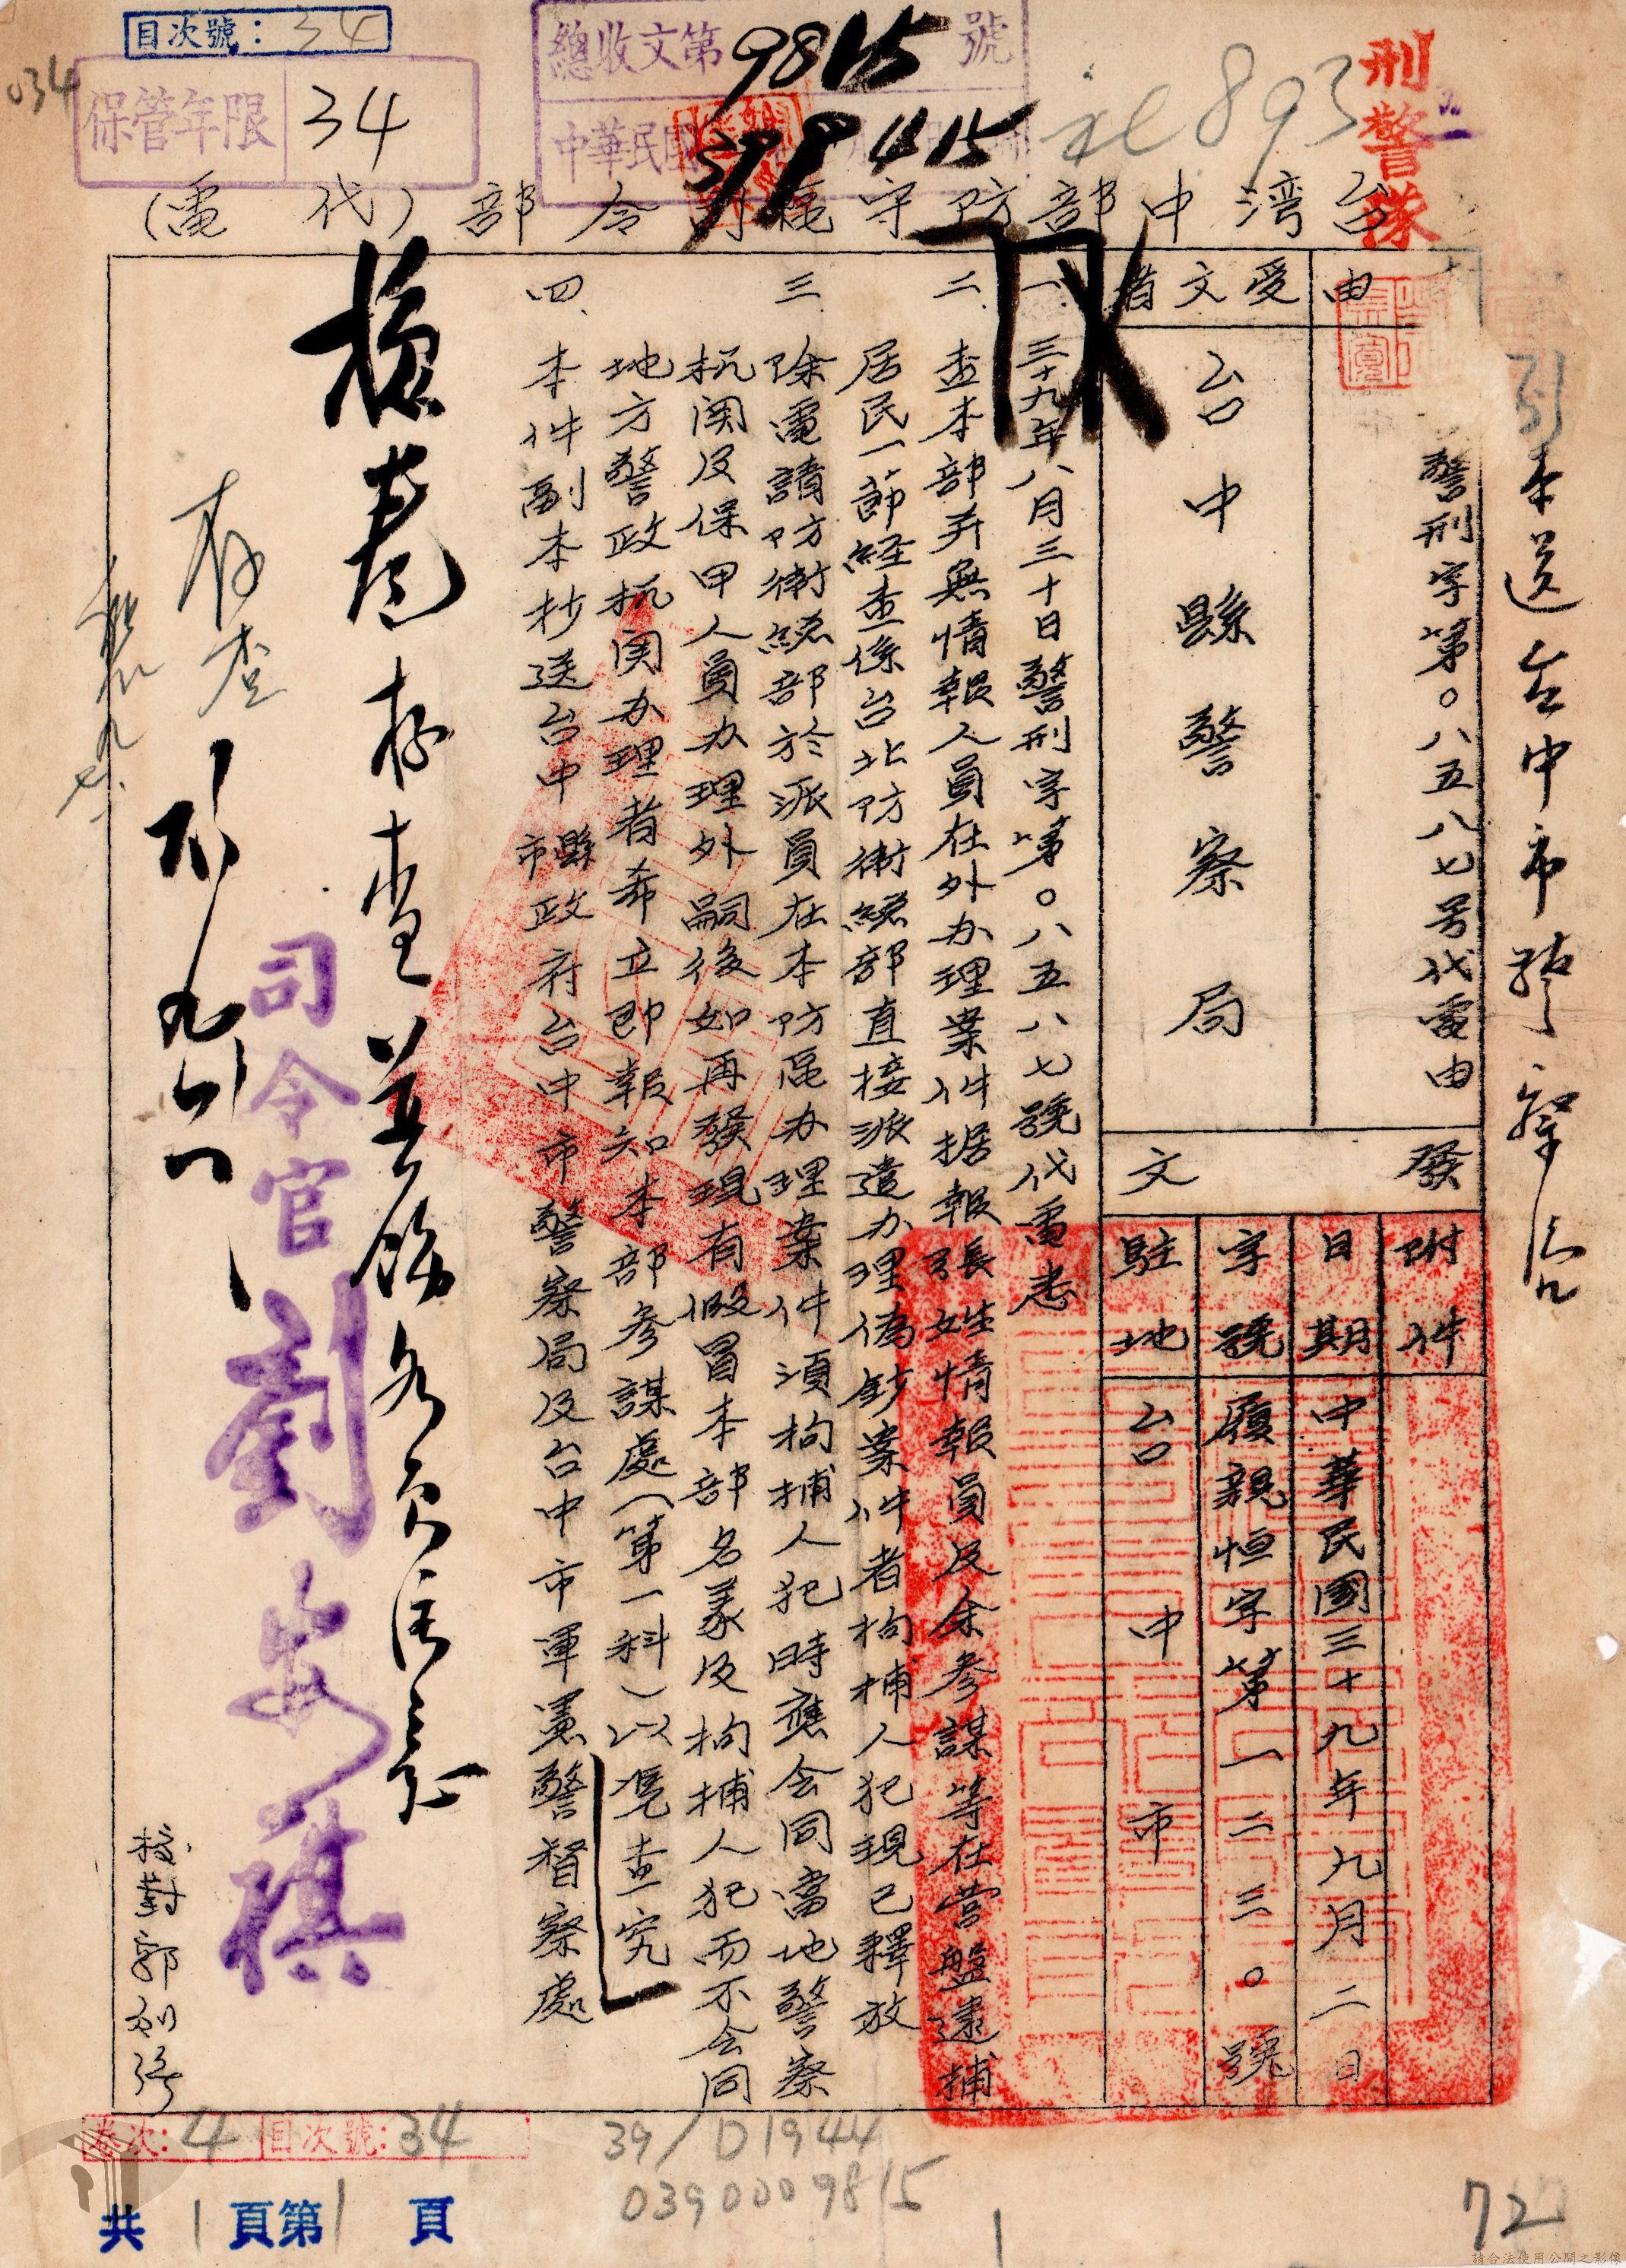 目次號：34
034
保管年限 34
總收文第9815號
中華民國39 9 4 15
893
刑警隊
台灣中部防守區司令部(代電)
副本送台中市警察局
由
警刑字第〇八五八七号代電由
受文者
台中縣警察局
發文
附件
日期 中華民國三十九年九月二日
字號 履親恒字第一二三〇號
駐地 台中市
一、三十九年八月三十日警刑字第〇八五八七號代電悉
二、查本部并無情報人員在外办理案件据報張姓情報員及余參謀等在营盤逮捕
居民一節経查係台北防衛總部直接派遣办理偽鈔案件者拘捕人犯現已釋放
三、除電請防衛總部於派員在本防區办理案件須拘捕人犯時應会同當地警察
机関及保甲人員办理外嗣後如再發現有假冒本部名義及拘捕人犯而不会同
地方警政机関办理者希立即報知本部參謀處(第一科)以凭查究
四、本件副本抄送台中縣市政府台中市警察局及台中市軍憲警督察處
存查
司令官劉安祺
校對郭
卷次：4 目次號：34
39/D1944
0390009815
共1頁第1頁
1
72
請合法使用公開之影像